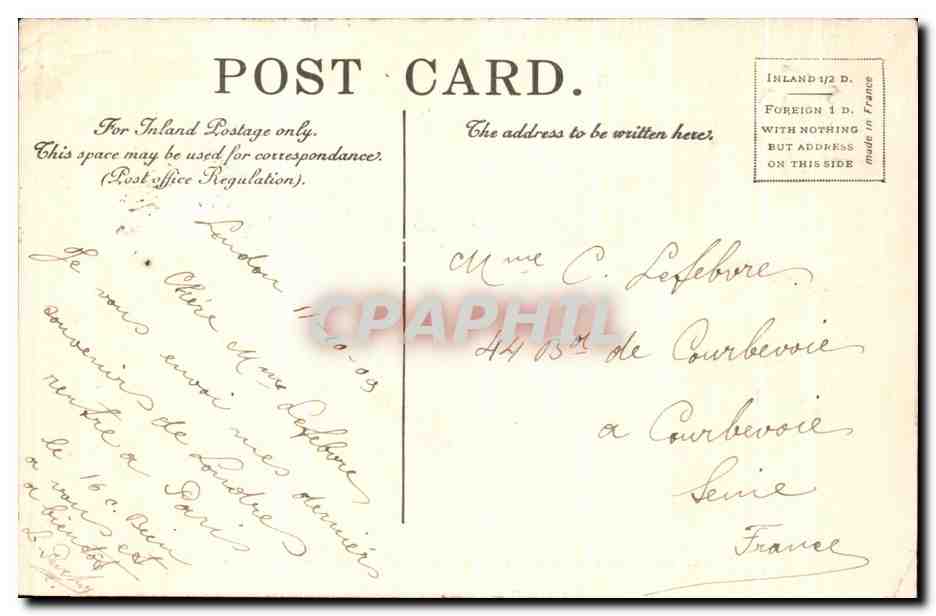 POST CARD.
For Inland Postage only.
This space may be used for correspondance.
(Post office Regulation).
The address to be written here.
INLAND 1/2 D.
FOREIGN 1 D.
WITH NOTHING
BUT ADDRESS
ON THIS SIDE
made in France
London 11 09
Chère Mme Lefebvre
Je vous envoi mes derniers
souvenirs de Londres
rentre a Paris
le 16 c. Bien
a vous et
a bientôt
Mme C. Lefebvre
44 Bd de Courbevoie
a Courbevoie
Seine
France
CPAPHIL